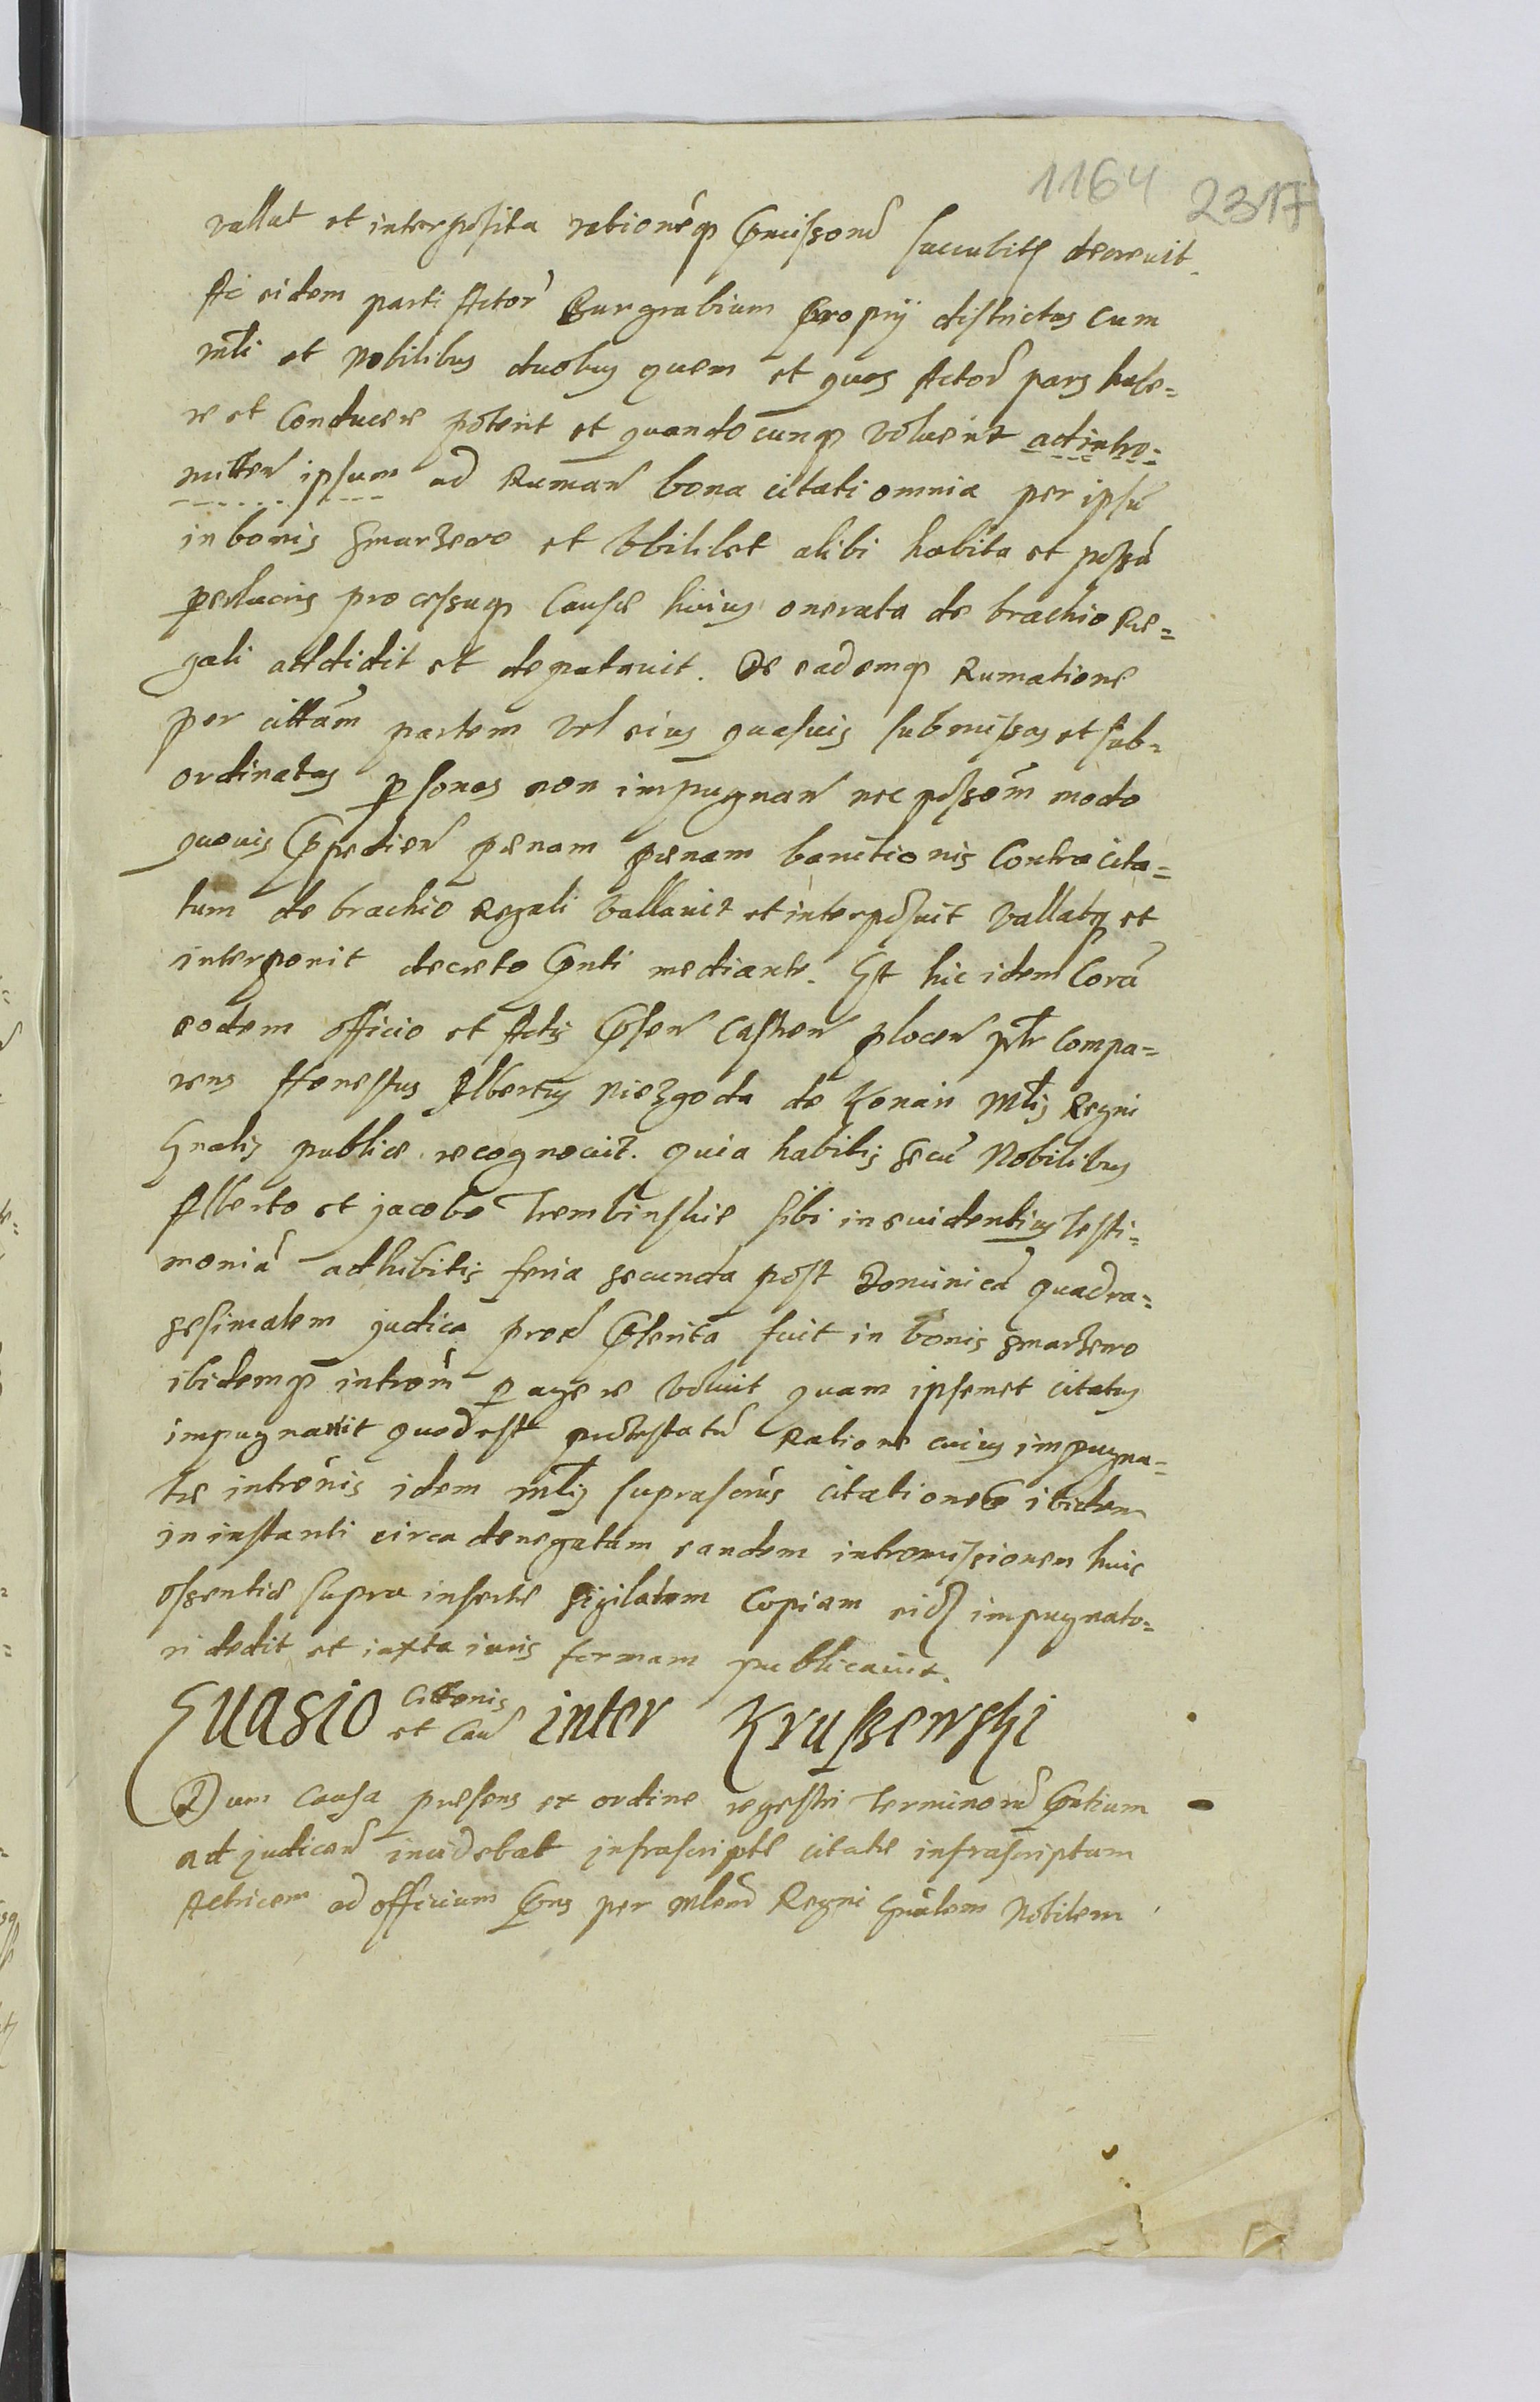 1164 2317
vallat et interposita rationeq Cmissorũ succubitũ decrevit.
Ac eidem parti Actor̃ Burgrabium Proprÿ districtus cum
mĩli et Nobilibus duobus quem et quos Actor̃ pars habe=
re et Conducere poterit et quandocunq voluerit ad intro=
mitten̄ ipsum ad Ruman̄ bona citati omnia per ipsũ
in bonis Smarzewo et Ubilibet alibi habita et possã
perlucris processuq Causæ huius onerata de brachio Re=
gali addidit et deputavit. De eademq Rumatione
per cittãm partem vel eius quasvis submissas et sub=
ordinatas psonas non impugnan̄ nec possõm modo
quovis Expedien̄ pænam pænam banitionis Contra cita=
tum de brachio Regali Vallavit et interposuit Vallatq et
interponit decreto Pnti mediante. Et hic idem Corã
eodem officio et Actis Pnsen̄ Castren̄ plocen̄ pltr Compa=
rens Honestus Albertus Niezgoda de Konari Mĩlis Regni
Gnalis publice recognovit. Quia habitis secũ Nobilibus
Alberto et Jacobo Trembinskie sibi in evidentius Testi=
moniũ adhibitis feria secunda post Dominicã quadra=
gesimalem judica prox̃ Pterita fuit in bonis Smarzewo
ibidemq introm̃ pagere voluit quam ipsemet citatus
impugnavit quod est protestatũ Ratione cuius impugna=
tæ introm̃nis idem mĩlis suprascrũs citationem ibidem
in instanti circa denegatam eandem intromissionem huic
ossentiæ supra insertæ sigilatam Copiam eidẽ impugnato=
ri dedit et iuxta iuris formam publicavit.
Evasio Cittonis et Cau̅ inter Kruszewski
Dum Causa præsens ex ordine regestri Terminorũ Pntium
ad judican̄ incidebat infrascriptæ citatæ infrascriptam
Actricem ad officium Pns per Mlem̃ Regni Gnãlem Nobilem